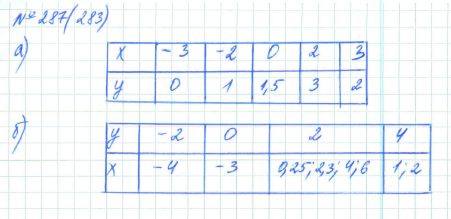 № 287 (283)
а)
x -3 -2 0 2 3
y 0 1 1,5 3 2
б)
y -2 0 2 4
x -4 -3 0,25; 2,3; 4; 6 1; 2